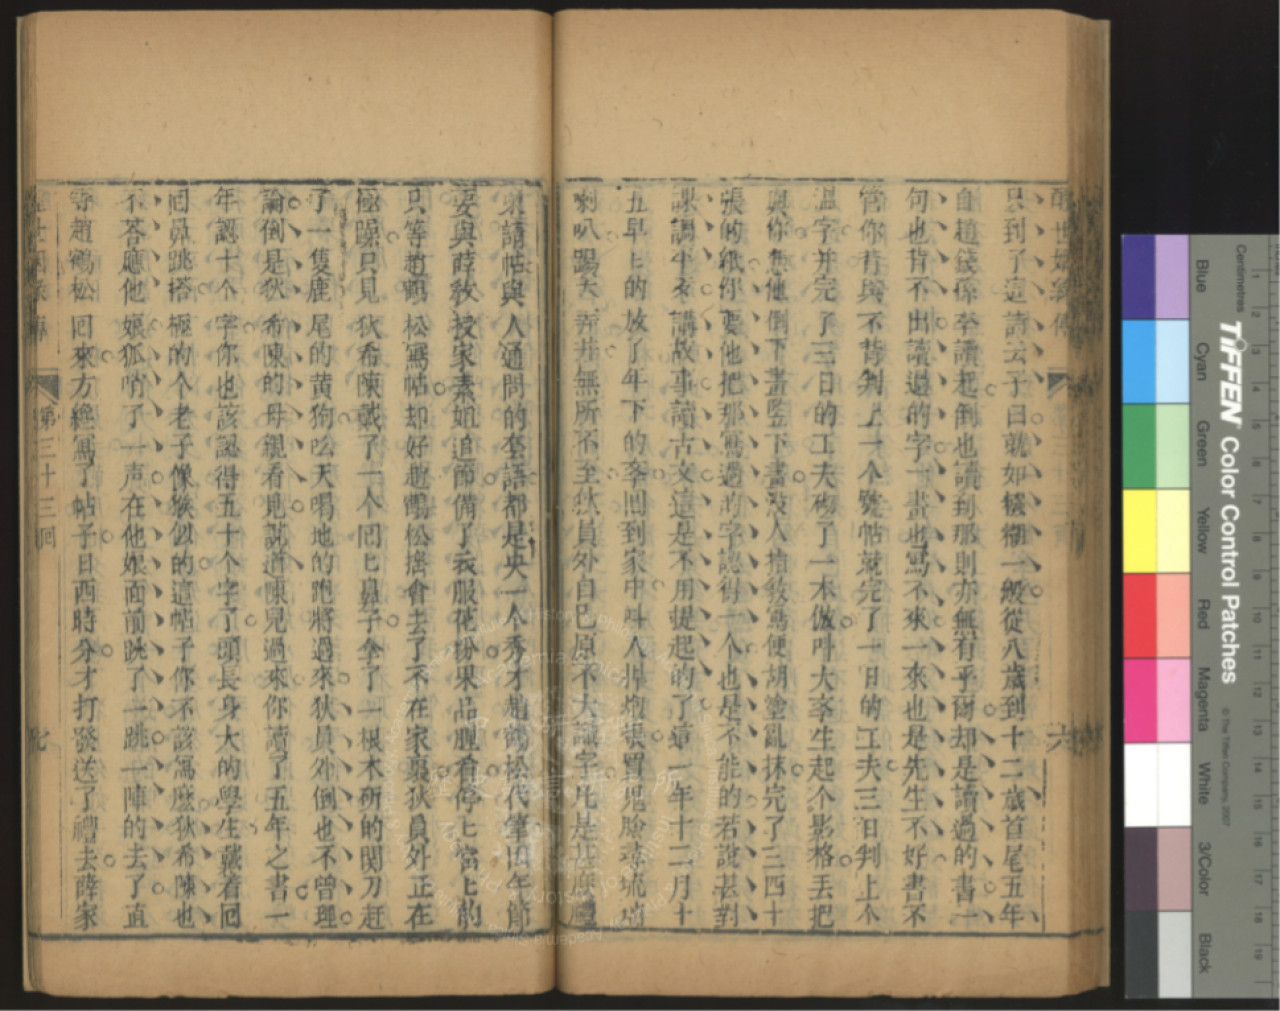 醒世姻緣傳
六
只到了這詩云子曰就如糨糊一般從八歲到十二歲首尾五年
自趙錢孫李讀起倒也讀到那則亦無有乎爾却是讀過的書一
句也背不出讀過的字一畫也寫不來一來也是先生不好書不
管你背與不背判上一个號帖就完了一日的工夫三日判上个
溫字并完了三日的工夫砌了一本倣叫大李生起个影格丟把
與你憑他倒下畫竪下畫沒人指教寫便胡塗亂抹完了三四十
張的紙你要他把那寫過的字認得一个也是不能的若說甚對
課講千文講故事讀古文這是不用提起的了這一年十二月十
五早上的放了年下的李回到家中叫人捍炮張買鬼臉尋琉璃
喇叭踢天弄井無所不至狄員外自己原不大識字凡是甚麽禮
柬請帖與人通問的套語都是央一个秀才趙鶴松代筆因年節
要與薛敎授家素姐追節備了衣服花粉果品腥肴停上當上的
只等趙鶴松寫帖却好趙鶴松擡會去了不在家裏狄員外正在
極躁只見狄希陳戴了一个回上鼻子拿了一根木斫的関刀赶
了一隻鹿尾的黃狗吆天喝地的跑將過來狄員外倒也不曾理
論倒是狄希陳的母親看見說道陳兒過來你讀了五年之書一
年認十个字你也該認得五十个字了頭長身大的學生戴着回
回鼻跳搭極的个老子像猴似的這帖子你不該寫麽狄希陳也
不答應他娘狐哨了一声在他娘面前跳了一跳一陣的去了直
等趙鶴松回來方纔寫了帖子日西時分才打發送了禮去薛家
第三十三回
七
TIFFEN Color Control Patches
© The Tiffen Company, 2007
Centimetres
Blue
Cyan
Green
Yellow
Red
Magenta
White
3/Color
Black